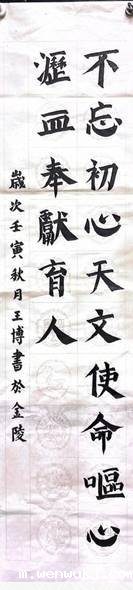 不忘初心天文使命嘔心
瀝血奉獻育人
歲次壬寅秋月王博書於金陵
m.wenwuba.com